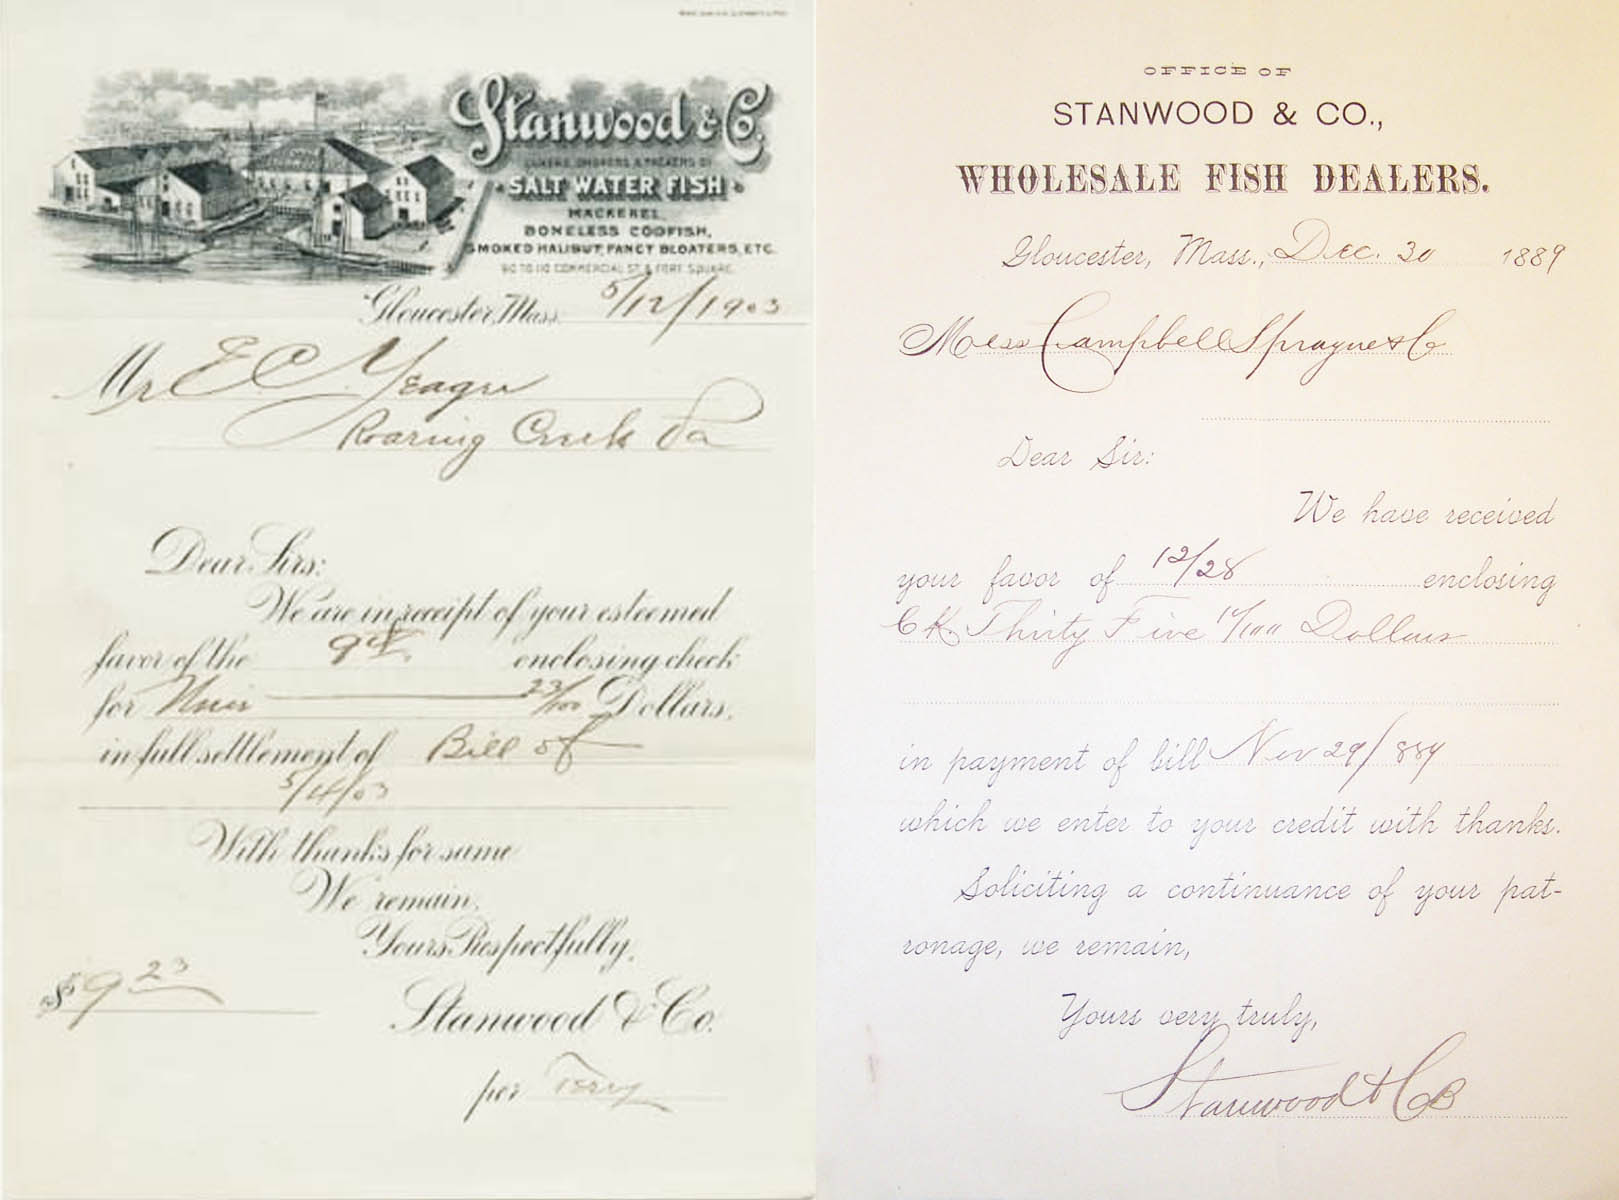 Stanwood & Co.
CURERS, SHIPPERS & PACKERS OF
SALT WATER FISH
MACKEREL,
BONELESS CODFISH,
SMOKED HALIBUT, FANCY BLOATERS, ETC.
90 TO 110 COMMERCIAL ST. & FORT SQUARE.
Gloucester, Mass. 5/12/1903
Mr E C Yeager
Roaring Creek Pa
Dear Sirs:
We are in receipt of your esteemed
favor of the 9th enclosing check
for Nine 23/100 Dollars,
in full settlement of Bill of
5/4/03
With thanks for same
We remain,
Yours Respectfully,
$9 23
Stanwood & Co.
per
OFFICE OF
STANWOOD & CO.,
WHOLESALE FISH DEALERS.
Gloucester, Mass., Dec. 30 1889
Mess Campbell Sprague & Co
Dear Sir:
We have received
your favor of 12/28 enclosing
CK. Thirty Five /100 Dollars
in payment of bill Nov 29/889
which we enter to your credit with thanks.
Soliciting a continuance of your pat-
ronage, we remain,
Yours very truly,
Stanwood & Co